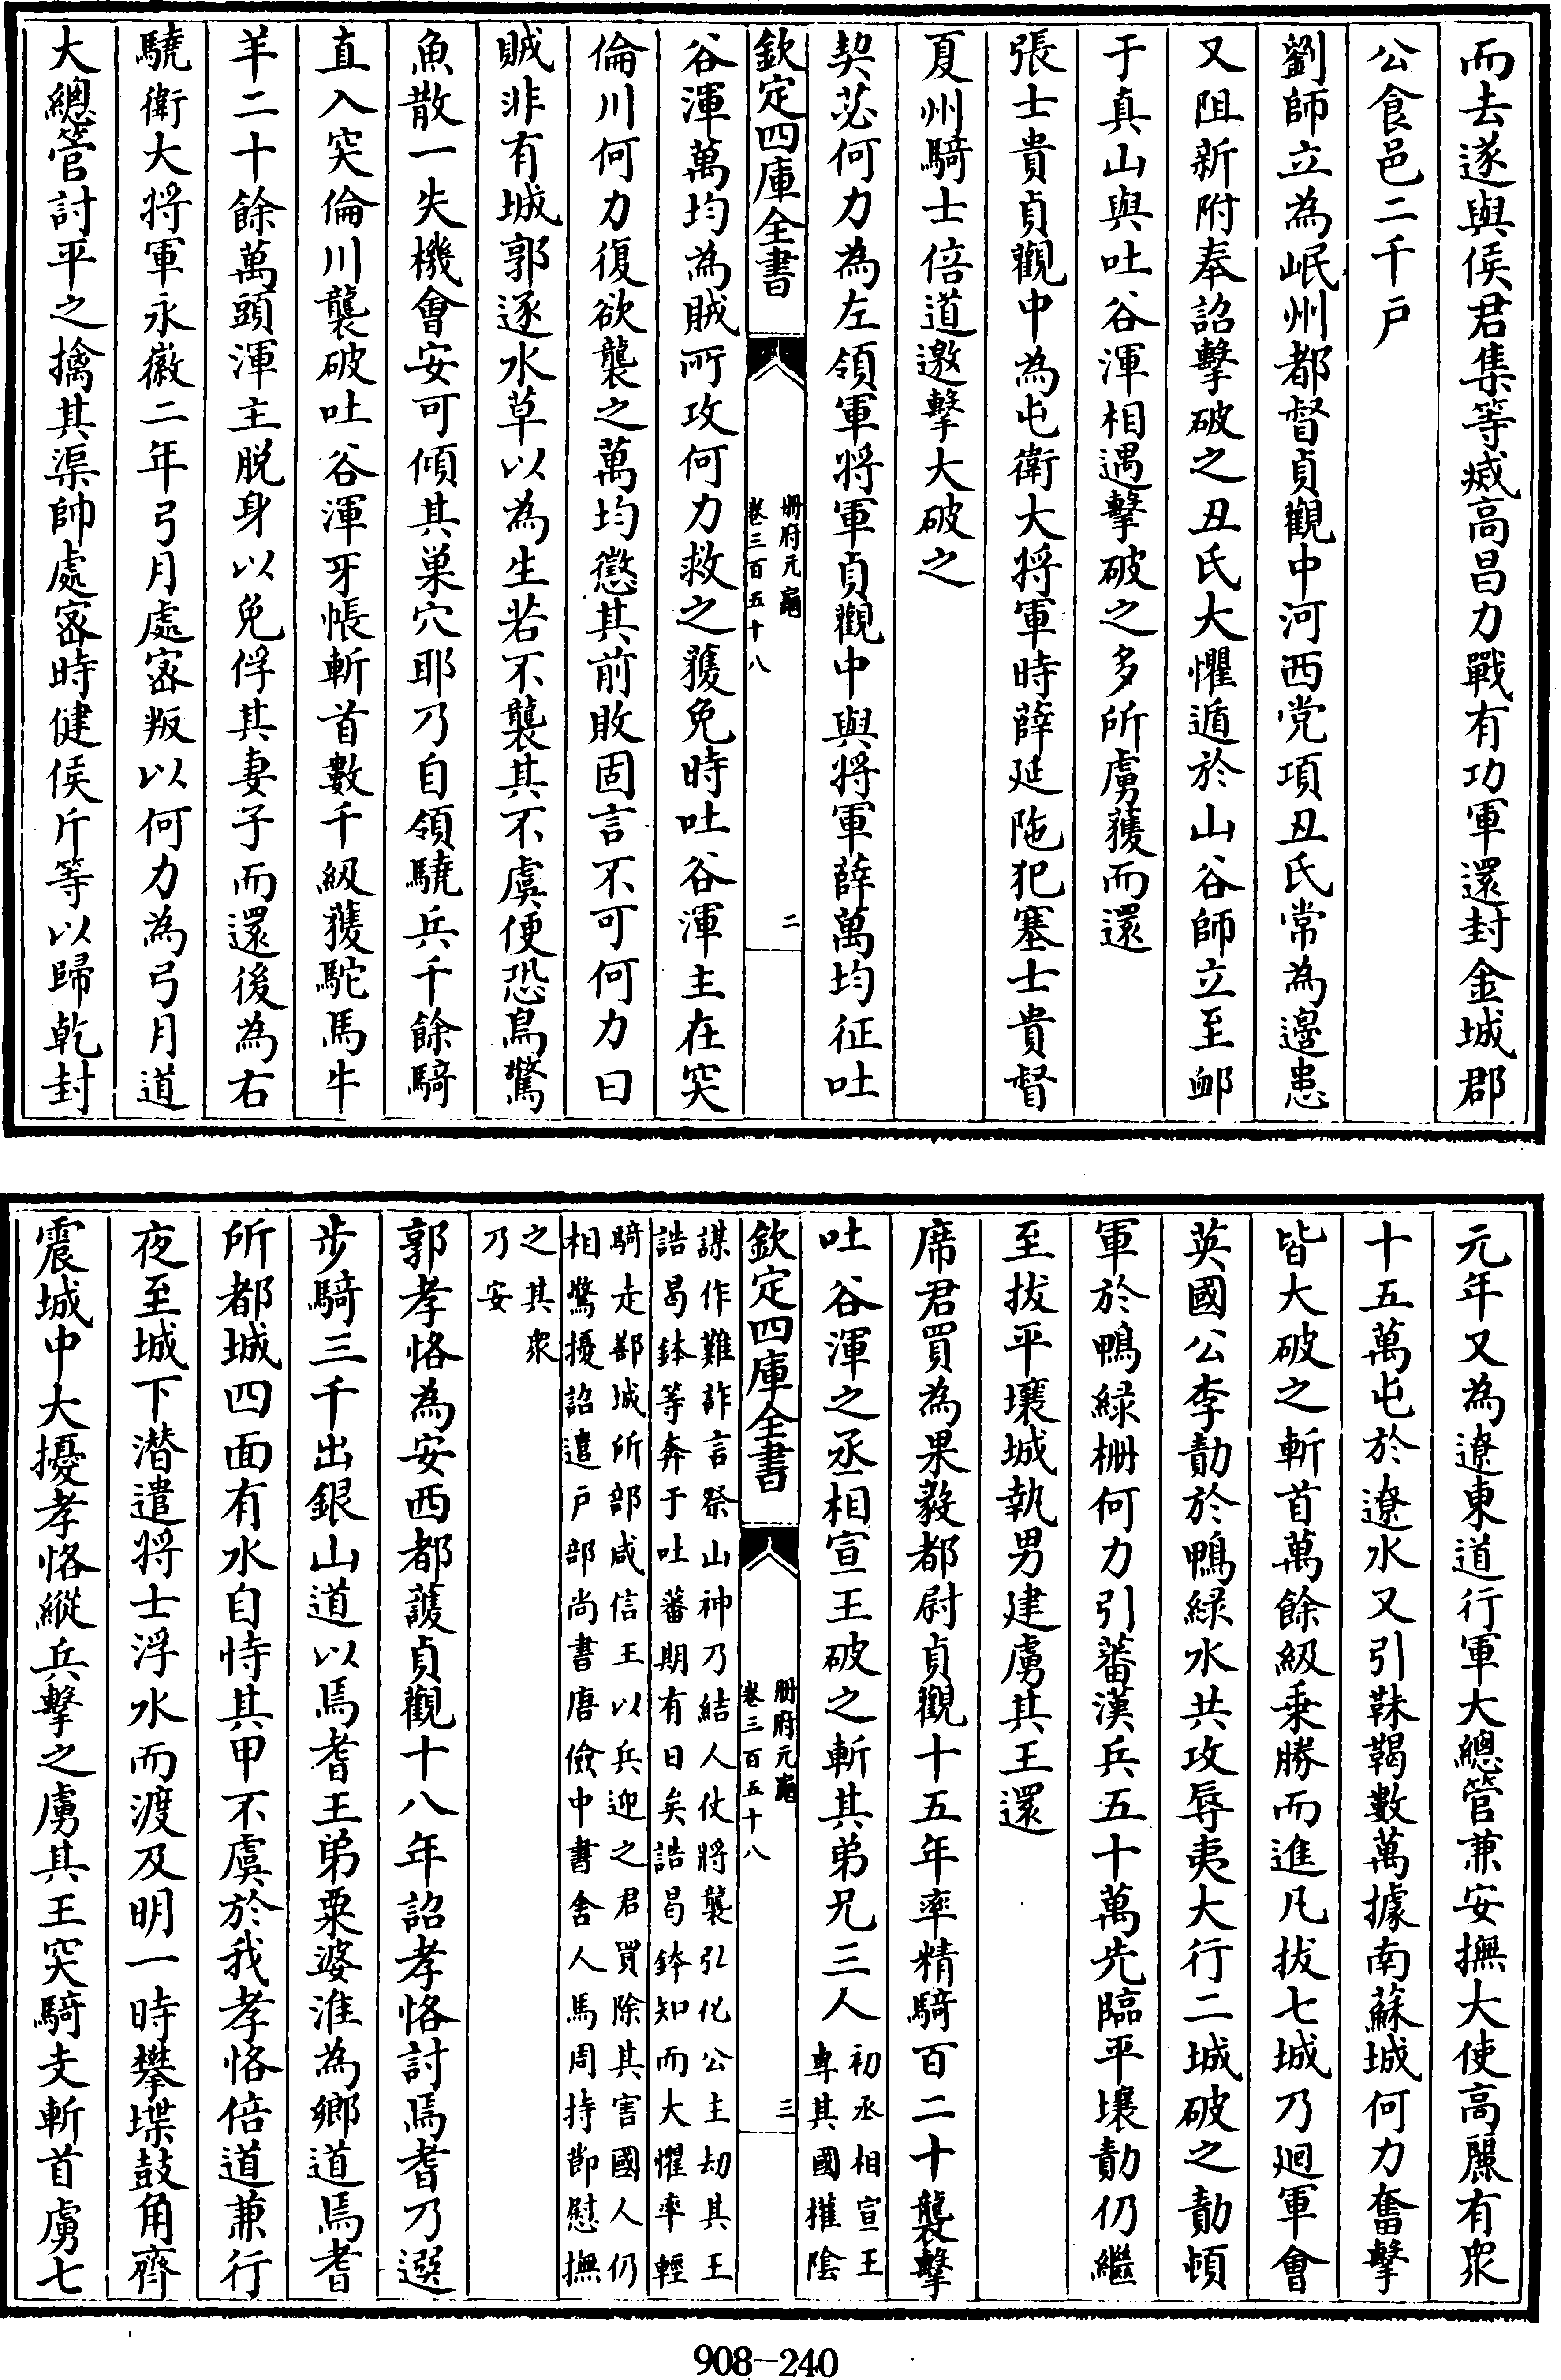 而去遂與侯君集等滅高昌力戰有功軍還封金城郡
公食邑二千戶
劉師立為岷州都督貞觀中河西党項丑氏常為邊患
又阻新附奉詔擊破之丑氏大懼遁於山谷師立至䘏
于真山與吐谷渾相遇擊破之多所虜獲而還
張士貴貞觀中為屯衛大将軍時薛延陁犯塞士貴督
夏州騎士倍道邀擊大破之
契苾何力為左領軍将軍貞觀中與将軍薛萬均征吐
欽定四庫全書
冊府元龜
卷三百五十八
二
谷渾萬均為賊所攻何力救之獲免時吐谷渾主在突
倫川何力復欲襲之萬均懲其前敗固言不可何力曰
賊非有城郭逐水草以為生若不襲其不虞便恐鳥驚
魚散一失機會安可傾其巢穴耶乃自領驍兵千餘騎
直入突倫川襲破吐谷渾牙帳斬首數千級獲駝馬牛
羊二十餘萬頭渾主脫身以免俘其妻子而還後為右
驍衛大将軍永徽二年弓月處宻叛以何力為弓月道
大總管討平之擒其渠帥處宻時健俟斤等以歸乾封
元年又為遼東道行軍大總管兼安撫大使高麗有衆
十五萬屯於遼水又引靺鞨數萬據南蘇城何力奮擊
皆大破之斬首萬餘級乗勝而進凡拔七城乃廻軍會
英國公李勣於鴨緑水共攻辱夷大行二城破之勣頓
軍於鴨緑栅何力引蕃漢兵五十萬先臨平壤勣仍繼
至拔平壤城執男建虜其王還
席君買為果毅都尉貞觀十五年率精騎百二十襲擊
吐谷渾之丞相宣王破之斬其弟兄三人初丞相宣王
專其國權陰
欽定四庫全書
冊府元龜
卷三百五十八
三
謀作難詐言祭山神乃結人仗將襲弘化公主刼其王
諾曷鉢等奔于吐蕃期有日矣諾曷鉢知而大懼率輕
騎走鄯城所部咸信王以兵迎之君買除其害國人仍
相驚擾詔遣戶部尚書唐儉中書舍人馬周持節慰撫
之其衆
乃安
郭孝恪為安西都護貞觀十八年詔孝恪討焉耆乃選
步騎三千出銀山道以焉耆王弟粟婆淮為鄉道焉耆
所都城四面有水自恃其甲不虞於我孝恪倍道兼行
夜至城下潜遣将士浮水而渡及明一時攀堞鼓角齊
震城中大擾孝恪縱兵擊之虜其王突騎支斬首虜七
908-240